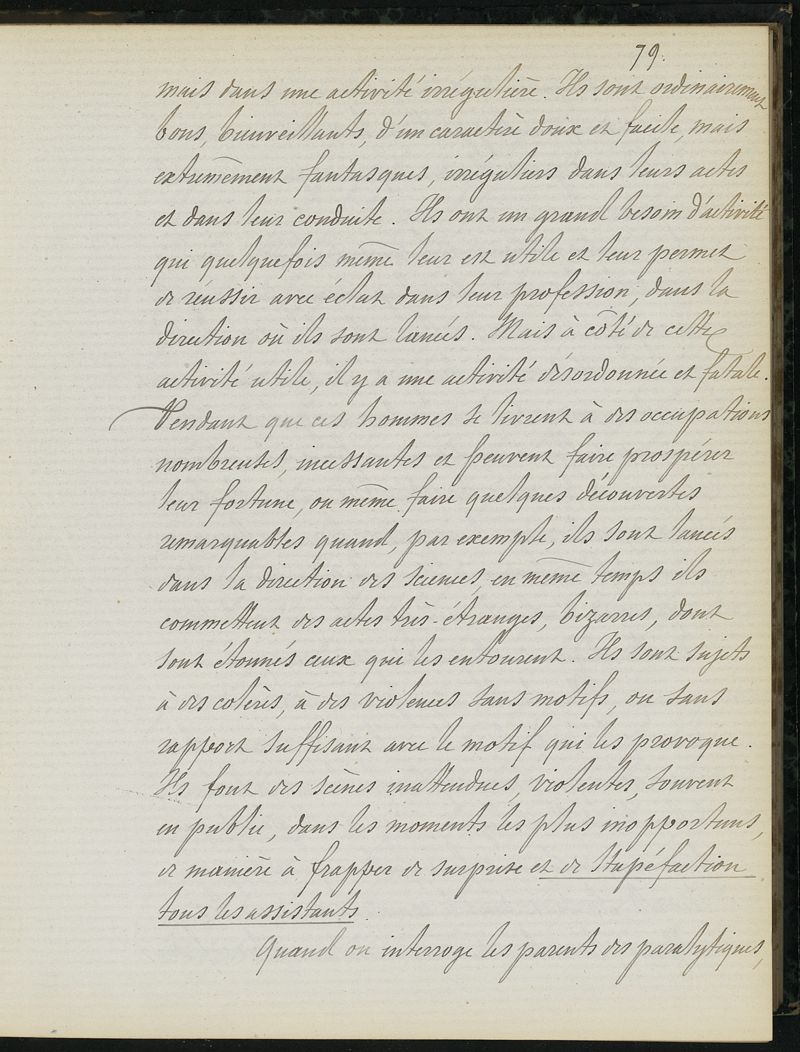 79.
mais dans une activité irrégulière. Ils sont ordinairement
bons, bienveillants, d'un caractère doux et facile, mais
extrêmement fantasques, irréguliers dans leurs actes
et dans leur conduite. Ils ont un grand besoin d'activité
qui quelquefois même leur est utile et leur permet
de réussir avec éclat dans leur profession, dans la
direction où ils sont lancés. Mais à côté de cette
activité utile, il y a une activité désordonnée et fatale.
Pendant que ces hommes se livrent à des occupations
nombreuses, incessantes et peuvent faire prospérer
leur fortune, ou même faire quelques découvertes
remarquables quand, par exemple, ils sont lancés
dans la direction des sciences, en même temps ils
commettent des actes très-étranges, bizarres, dont
sont étonnés ceux qui les entourent. Ils sont sujets
à des colères, à des violences sans motifs, ou sans
rapport suffisant avec le motif qui les provoque.
Ils font des scènes inattendues, violentes, souvent
en public, dans les moments les plus inopportuns,
de manière à frapper de surprise et de stupéfaction
tous les assistants.
Quand on interroge les parents des paralytiques,